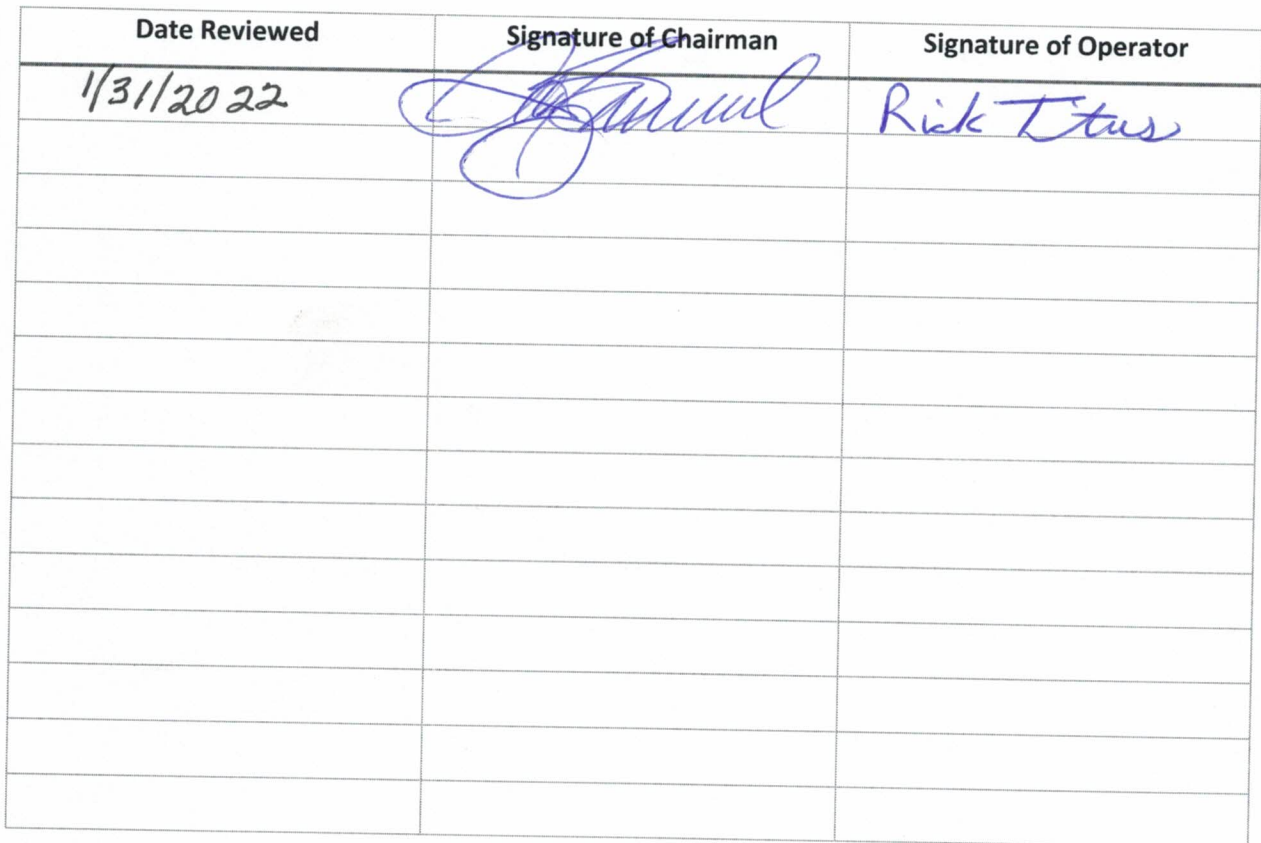 Date Reviewed Signature of Chairman Signature of Operator
1/31/2022 Rick Titus